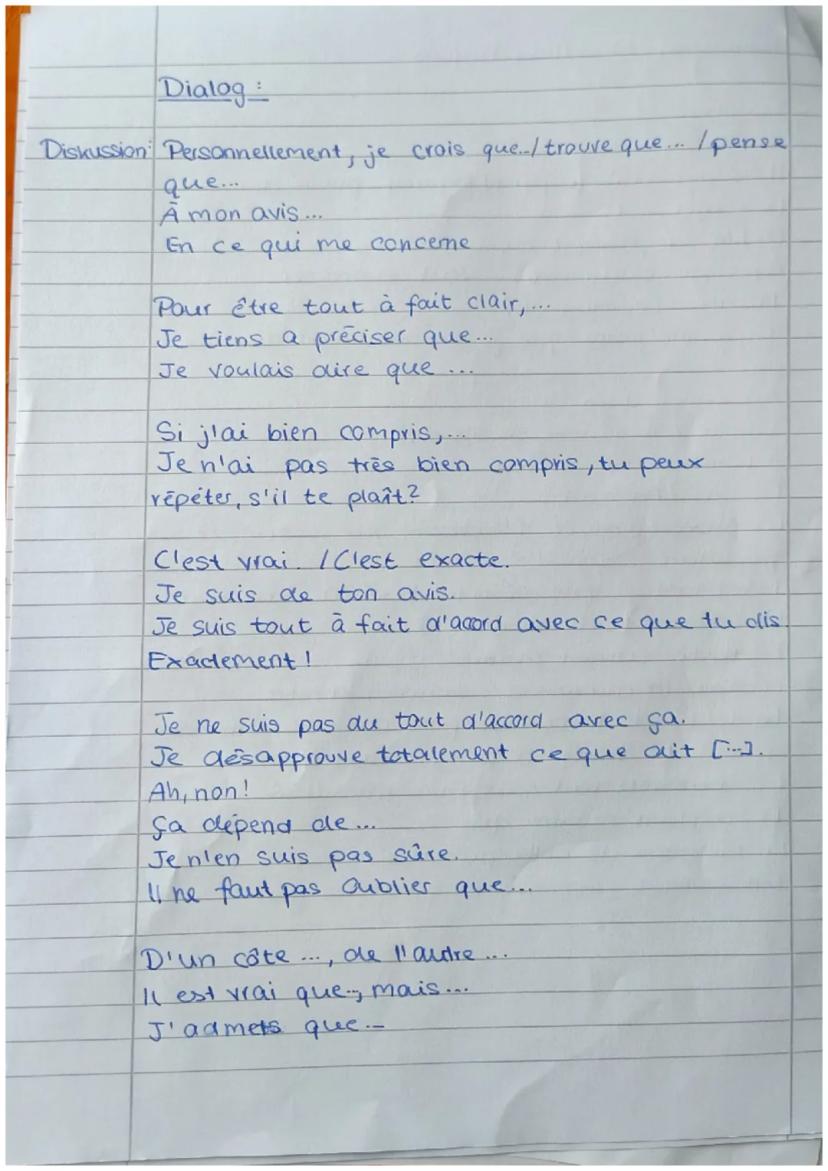 Dialog:
Diskussion: Personnellement, je crois que.../trouve que... /pense
que...
À mon avis...
En ce qui me concerne
Pour être tout à fait clair,...
Je tiens a préciser que...
Je voulais dire que ...
Si j'ai bien compris,...
Je n'ai pas très bien compris, tu peux
répéter, s'il te plaît?
C'est vrai. / C'est exacte.
Je suis de ton avis.
Je suis tout à fait d'accord avec ce que tu dis.
Exactement!
Je ne suis pas du tout d'accord avec ça.
Je désapprouve totalement ce que dit [...].
Ah, non!
Ça dépend de...
Je n'en suis pas sûre.
Il ne faut pas oublier que...
D'un côte ..., de l'autre ...
Il est vrai que..., mais...
J'admets que...